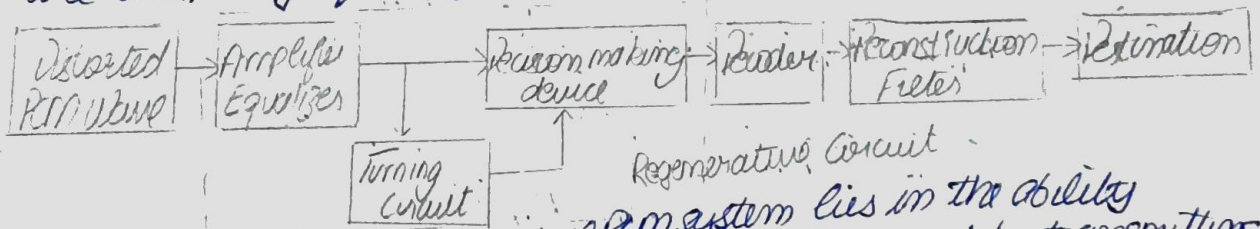 Distorted PCM Wave
Amplifier Equalizer
Decision making device
Decoder
Reconstruction Filter
Destination
Turning Circuit
Regenerative Circuit
system lies in the ability